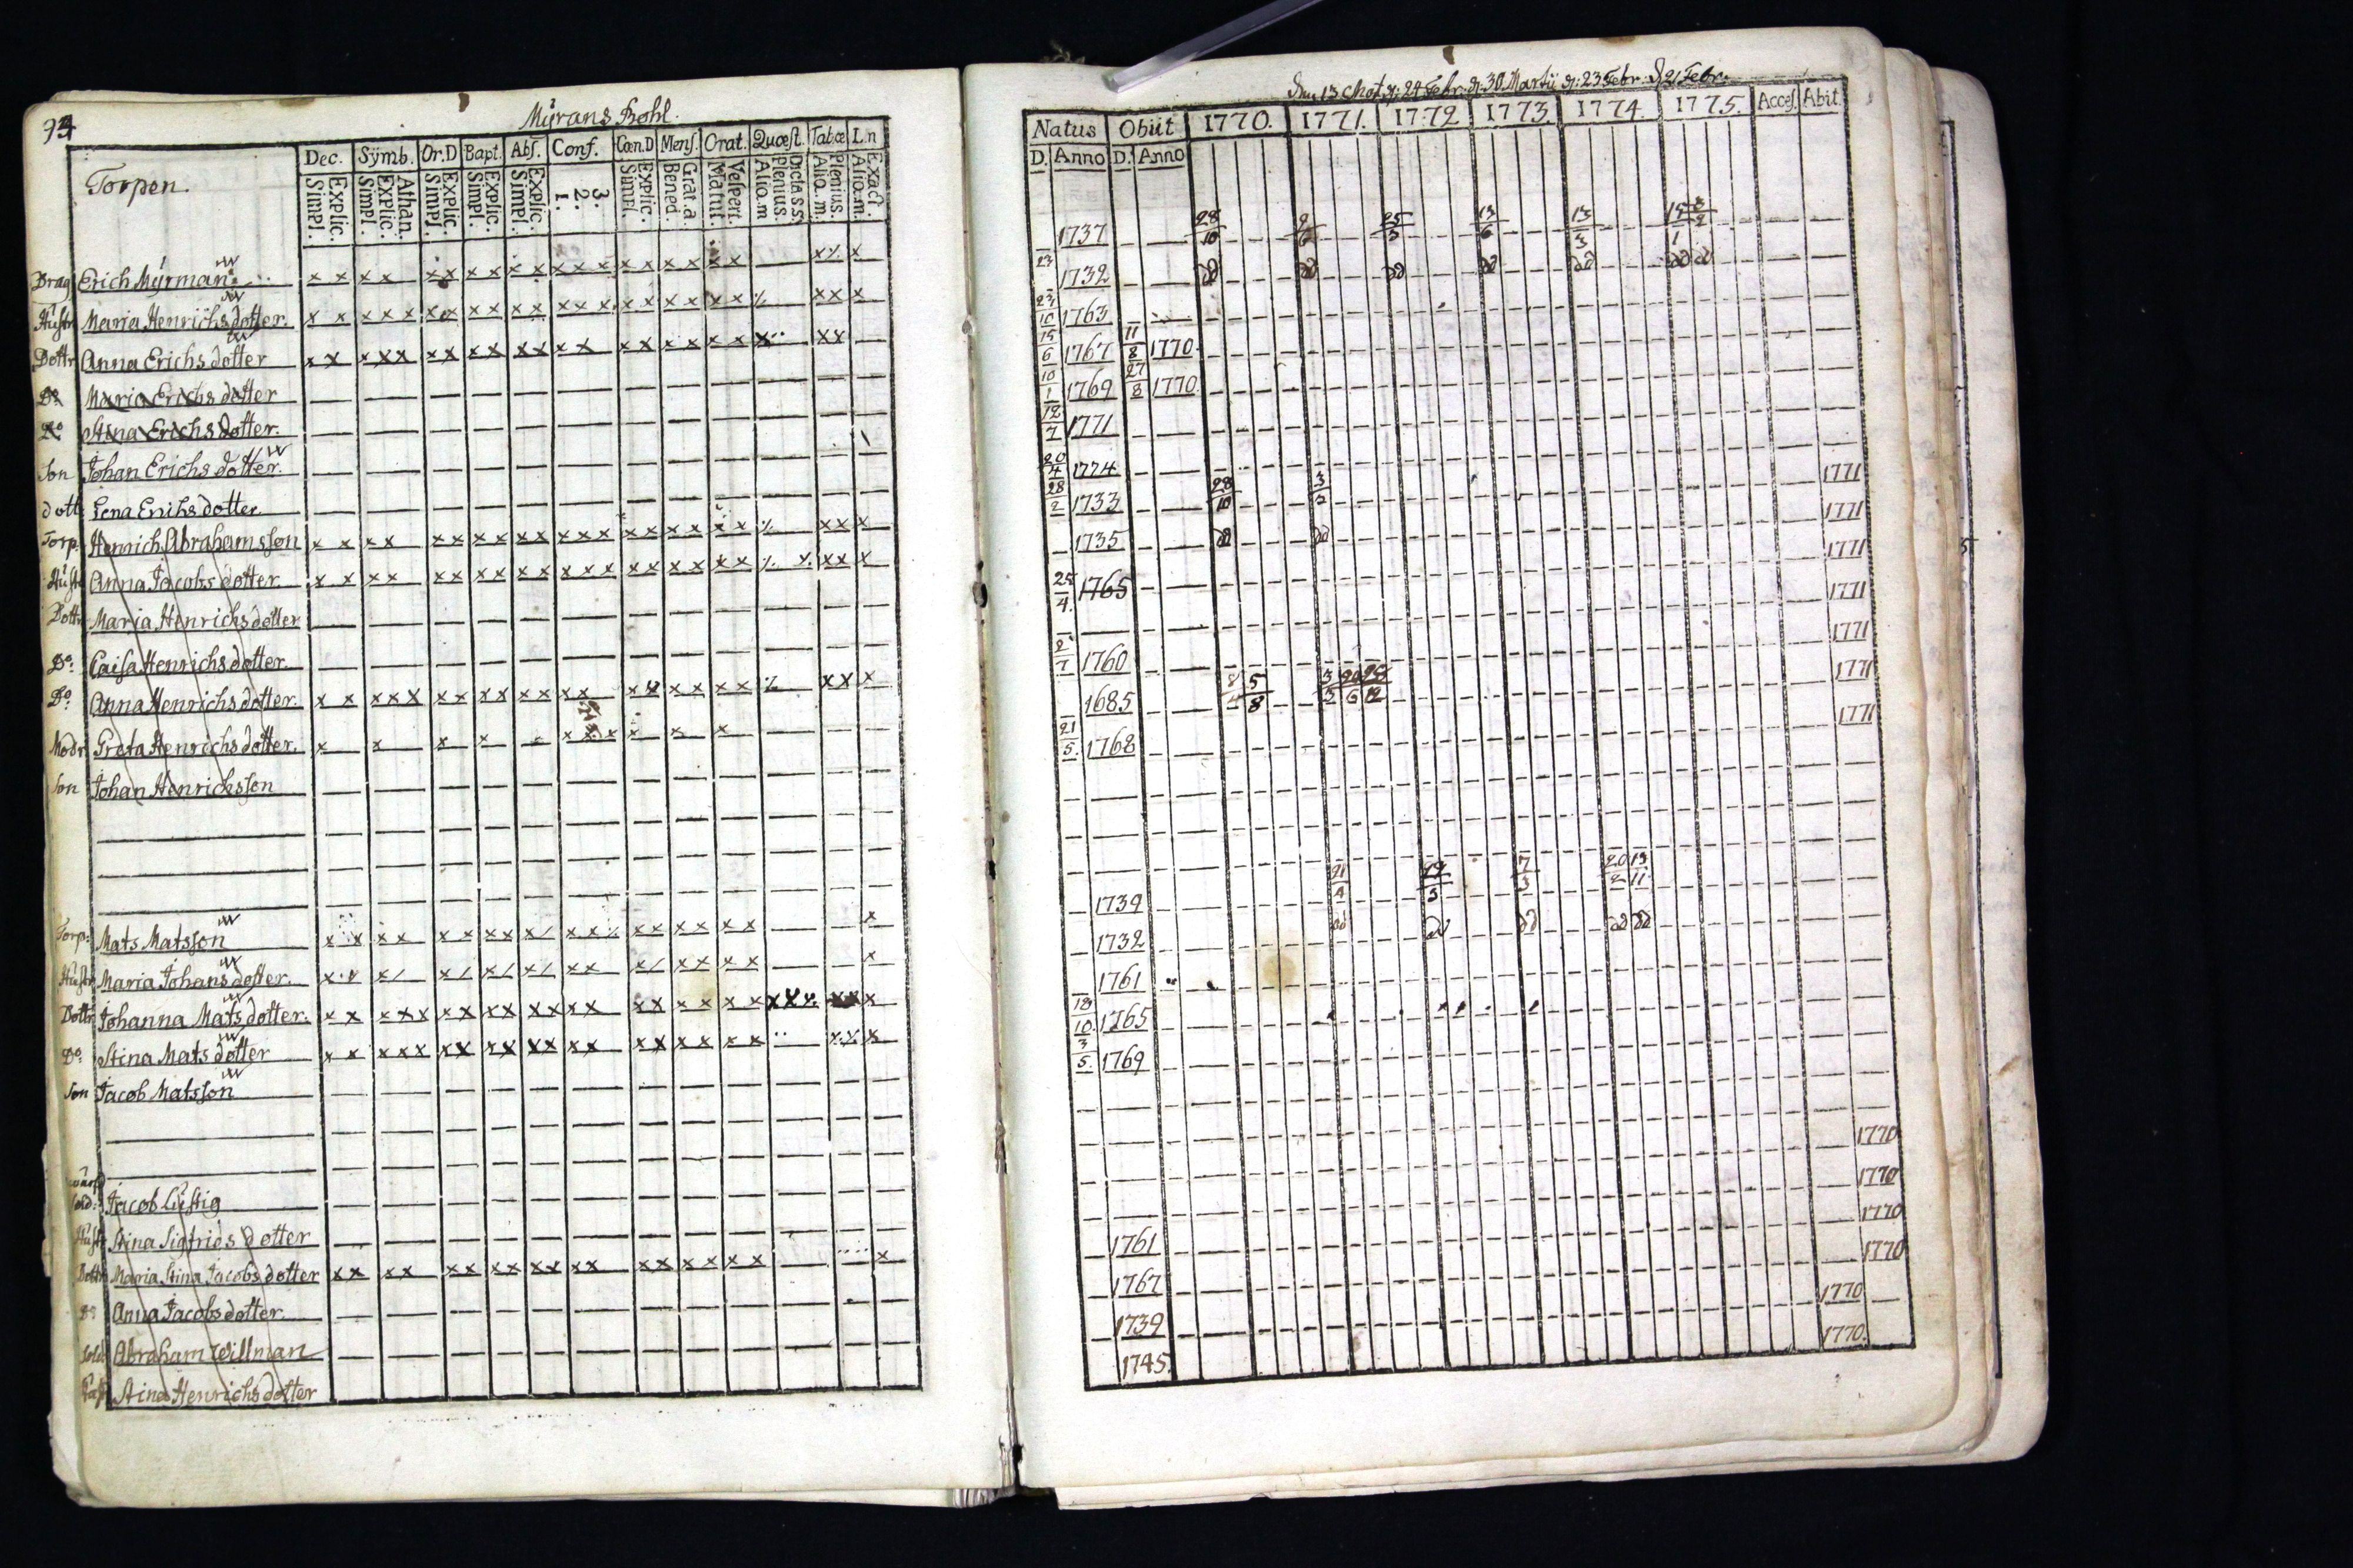 Mÿrans Bohl.
Torpen.
Dec. Sÿmb. Or.D Bapt. Abs. Conf. Cœn.D Mens. Orat. Quæst. Tabæ L.n
Simpl. Explic. Simpl. Explic. Athan. Simpl. Explic. Simpl. Explic. Simpl. Explic. 1. 2. 3. Simpl. Explic. Bened. Grat.a Matut. Vespert. Alio.m Plenius. Dicta.S.S. Alio.m. Plenius. Alio.m. Exact.
Drag Erich Mÿrman
Hustr Maria Henrichs dotter
Dottr Anna Erichs dotter
Do Maria Erichs dotter
Do Stina Erichs dotter.
Son Johan Erichs dotter.
dott Lena Erichs dotter
Torp. Henrich Abrahamsson
Hust Anna Jacobs dotter
Dottr Maria Henrichs dotter
Do. Caisa Henrichs dotter.
Do. Anna Henrichs dotter.
Modr Greta Henrichs dotter.
Son Johan Henrichsson
Torp: Mats Matsson
Hustr Maria Johans dotter.
Dottr Johanna Mats dotter.
Do. Stina Mats dotter
Son Jacob Matsson
Sold: Jacob Lustig
Hust Stina Sigfrids dotter
Dottr Maria Stina Jacobs dotter
Do Anna Jacobs dotter.
Sold Abraham Willman
Stina Henrichs dotter
24 Febr: 30 Martii 23 Febr: 21 Febr.
Natus Obiit 1770. 1771. 1772 1773. 1774. 1775. Acces. Abit.
D. Anno D. Anno
1737 28/10 25/3 13/6 13/3
23 1732 dd dd dd dd dd dd dd
23/10 1763
15/6 1767 11/8 1770
10/1 1769 27/8 1770
12/7 1771
20/4 1774
28/2 1733 28/10 3/2 1771
1735 dd dd 1771
25/4. 1765 1771
1771
2/7 1760 1771
1685 5/8 1771
21/5. 1768 1771
1739 21/4 29/3 7/3 20/2 13/11
1732 dd dd dd dd dd
1761
18/10 1765
3/5. 1769
1770
1770
1761 1770
1767 1770
1739 1770
1745. 1770.